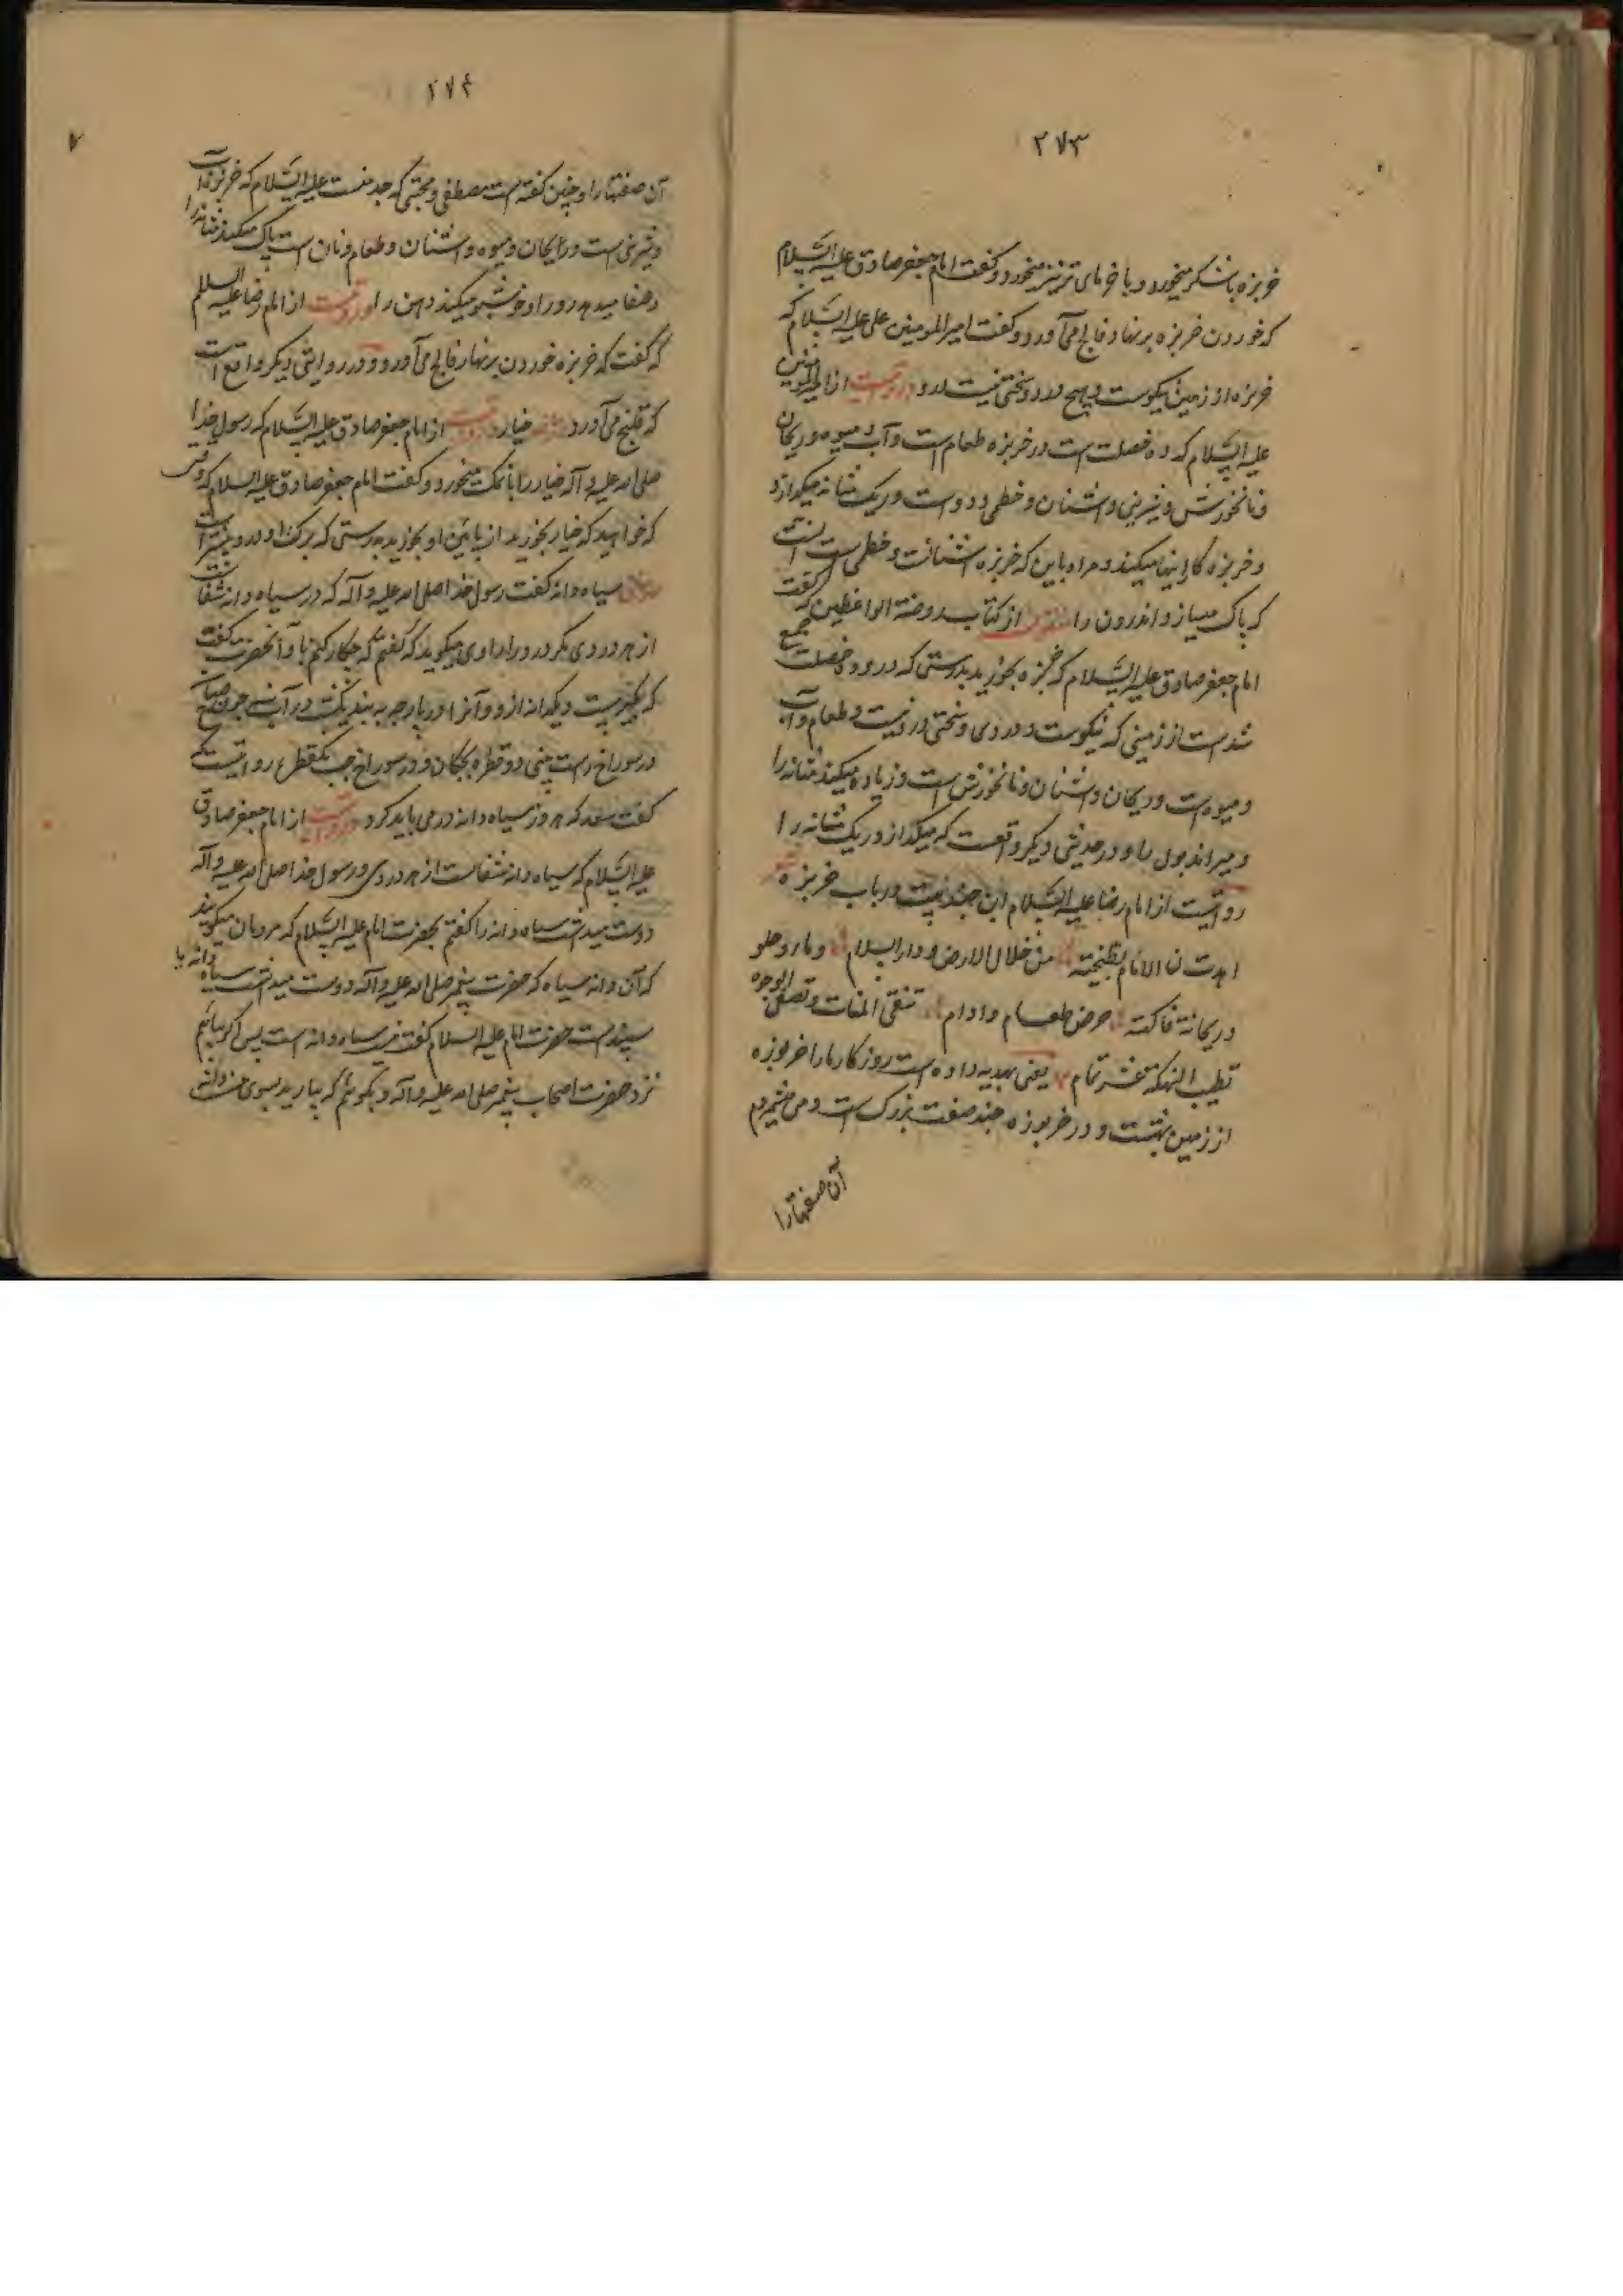 ۲۷۳
خربزه باشکر میخورد و با خرمای تر نیز میخورد و گفت امام جعفر صادق علیه السلام
که خوردن خربزه برنهار فالج می آورد و گفت امیر المومنین علی علیه السلام که
خربزه از زمین نیکوست و هیچ درد و سختی نیست درو و روایتست از امیر المومنین
علیه السلام که ده خصلت است در خربزه طعام است و آب و میوه و ریحان
و نانخورش و شیرینی و اشنان و خطمی و دوست و ریک مثانه میگدازد
و خربزه کار اینها میکند و مراد باین که خربزه اشنانست و خطمی است آنست
که پاک میسازد اندرون را از کتاب روضة الواعظین که گفت
امام جعفر صادق علیه السلام که خربزه بخورید بدرستی که درو ده خصلت جمع
شدست از زمینی که نیکوست و دردی و سختی درو نیست و طعام و آب
و میوه است و ریحان و اشنان و نانخورش است و زیاده میکند مثانه را
و میراند بول را و در حدیثی دیگر واقعست که میگدازد ریک مثانه را
روایتست از امام رضا علیه السلام این چند بیت در باب خربزه
اهدت لنا الایام بطیخته من خلال الارض و دار السلام و مار و حلو
و ریحانة فاکته حرض طعام و ادام تنقی المثات و تصفی الوجوه
تطیب النهکة عشر تمام یعنی بهدیه داده است روزگار ما را خربوزه
از زمین بهشت و در خربوزه چند صفت بزرک است و می شمردم
آن صفتها را
۲۷۴
آن صفتها را و چنین گفته است مصطفی و مجتبی که جد منست علیه السلام که خربزه آب
و شیرینی است و ریحان و میوه و اشنان و طعام و نان است پاک میکند مثانه را
و صفا میدهد رو را و خوشبو میکند دهن را و روایتست از امام رضا علیه السلام
که گفت که خربزه خوردن برنهار فالج می آورد و در روایتی دیگر واقع است
که قلنج می آورد خیار روایتست از امام جعفر صادق علیه السلام که رسول خدا
صلی الله علیه و آله خیار را با نمک میخورد و گفت امام جعفر صادق علیه السلام که وقتی
که خواهید که خیار بخورید از پائین او بخورید بدرستی که برکت او درو بیشتر است
سیاه دانه گفت رسول خدا صلی الله علیه و آله که در سیاه دانه شفاست
از هر دردی مگر درد راوی میگوید که گفتم که چکار کنم با او آنحضرت گفت
که بگیر بیست و یکدانه ازو و آنرا در پارچه به بند یکشب در آب نه چون صباح
در سوراخ راست بینی دو قطره بچکان و در سوراخ چپ یکقطره روایتست که
گفت سعد که هر روز سیاه دانه درمی باید کرد و روایتست از امام جعفر صادق
علیه السلام که سیاه دانه شفاست از هر دردی و رسول خدا صلی الله علیه و آله
دوست میداشت سیاه دانه را گفتم بحضرت امام علیه السلام که مردمان میگویند
که آن دانه سیاه که حضرت پیغمبر صلی الله علیه و آله دوست میداشت سیاه دانه یا
سپندست حضرت امام علیه السلام گفت نی سیاه دانه است پس اگر بیائیم
نزد حضرت اصحاب پیغمبر صلی الله علیه و آله و بگوئیم که بیارید بسوی من دانه